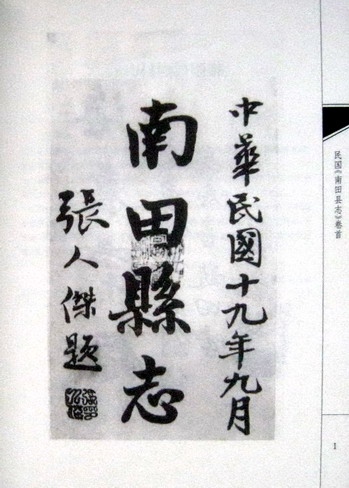 中華民國十九年九月
南田縣志
張人傑題
民国《南田县志》卷首
1